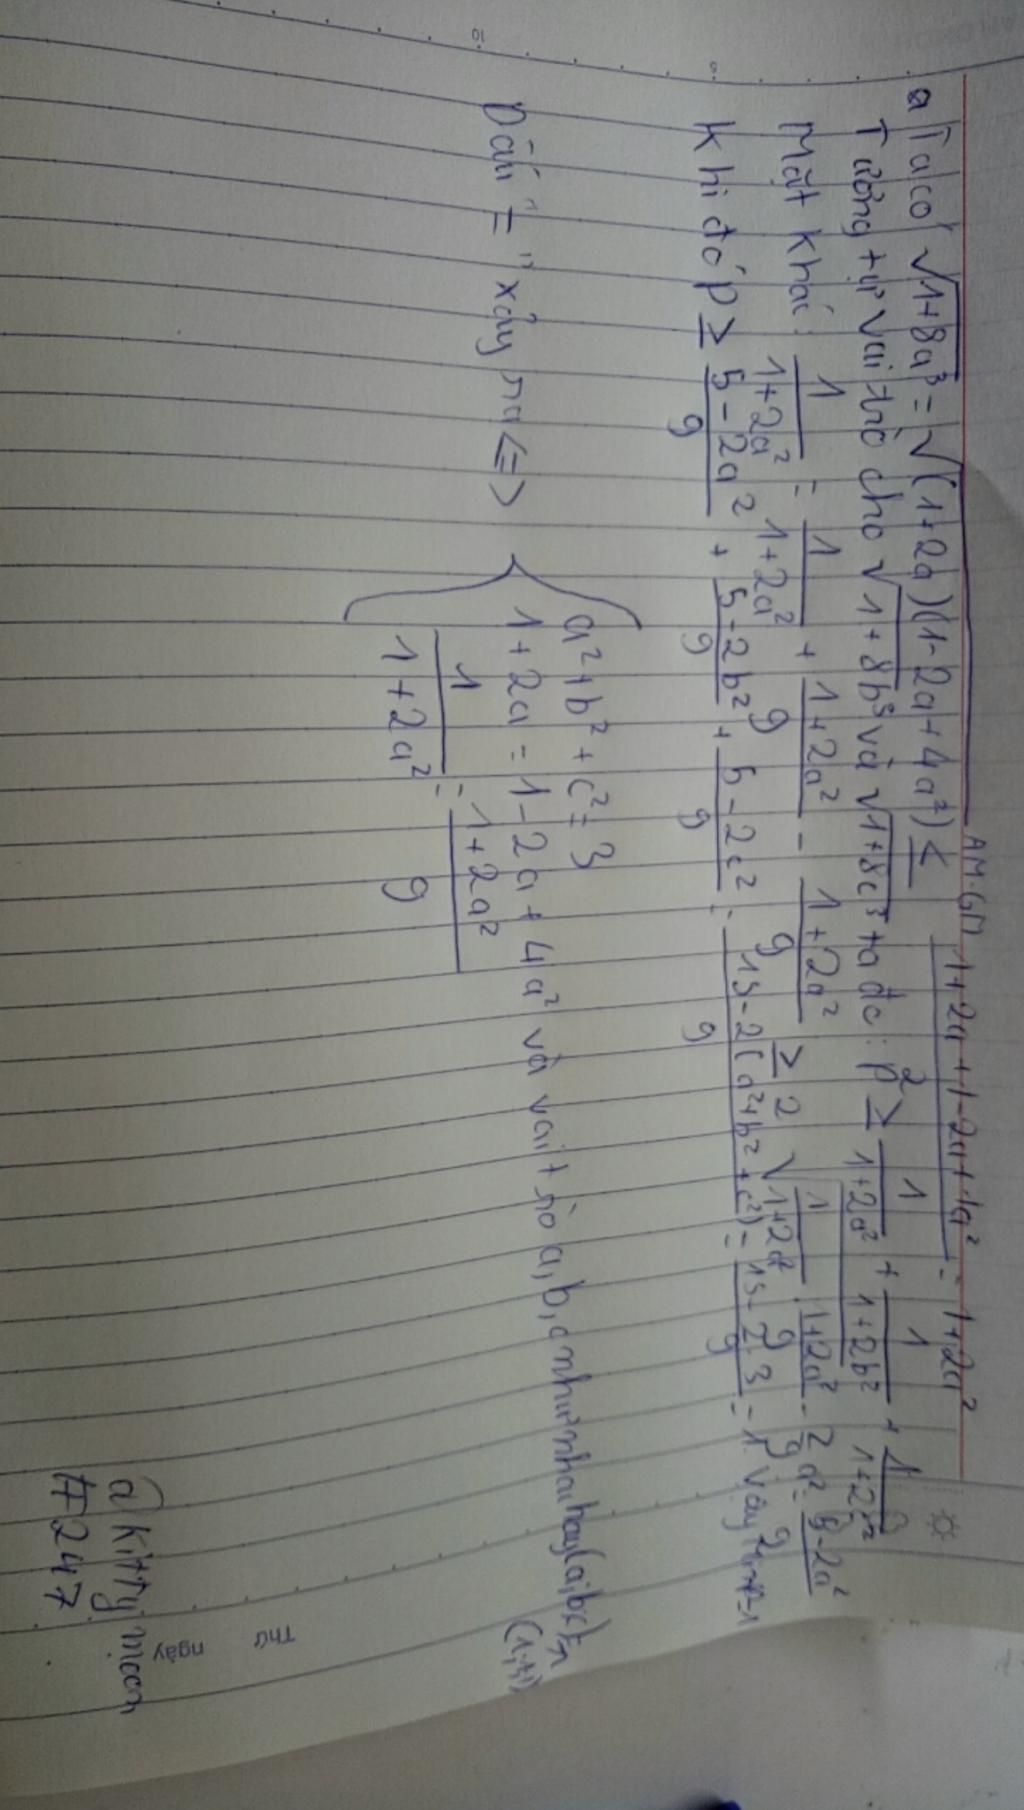 a Ta có √1+8a³ = √(1+2a)(1-2a+4a²) ≤ AM-GM (1+2a+1-2a+4a²)/2 = 1+2a²
Tương tự vai trò cho √1+8b³ và √1+8c³ ta đc: P ≥ 1/(1+2a²) + 1/(1+2b²) + 1/(1+2c²)
Mặt khác: 1/(1+2a²) = 1/(1+2a²) + (1+2a²)/9 - (1+2a²)/9 ≥ 2√1/(1+2a²) · (1+2a²)/9 - 2/9 a² =
Khi đó P ≥ (5-2a²)/9 + (5-2b²)/9 + (5-2c²)/9 = (15-2(a²+b²+c²))/9 = (15-2.3)/9 = 1 vậy
Dấu "=" xảy ra <=> { a²+b²+c²=3
1+2a = 1-2a+4a² và vai trò a,b,c như nhau hay (a,b,c)=
(1,1,1)
1/(1+2a²) = (1+2a²)/9
@kitty moon
#247
Thứ
ngày
10